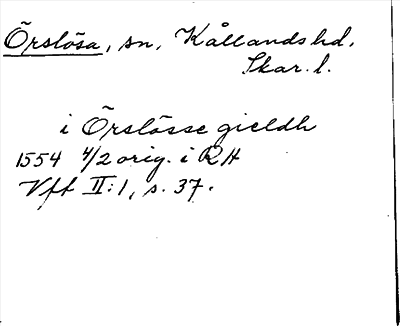 Örslösa, sn, Kållands hd.
Skar. l.
i Örslösse gieldh
1554 4/2 orig. i RA
Vft II:1, s. 37.